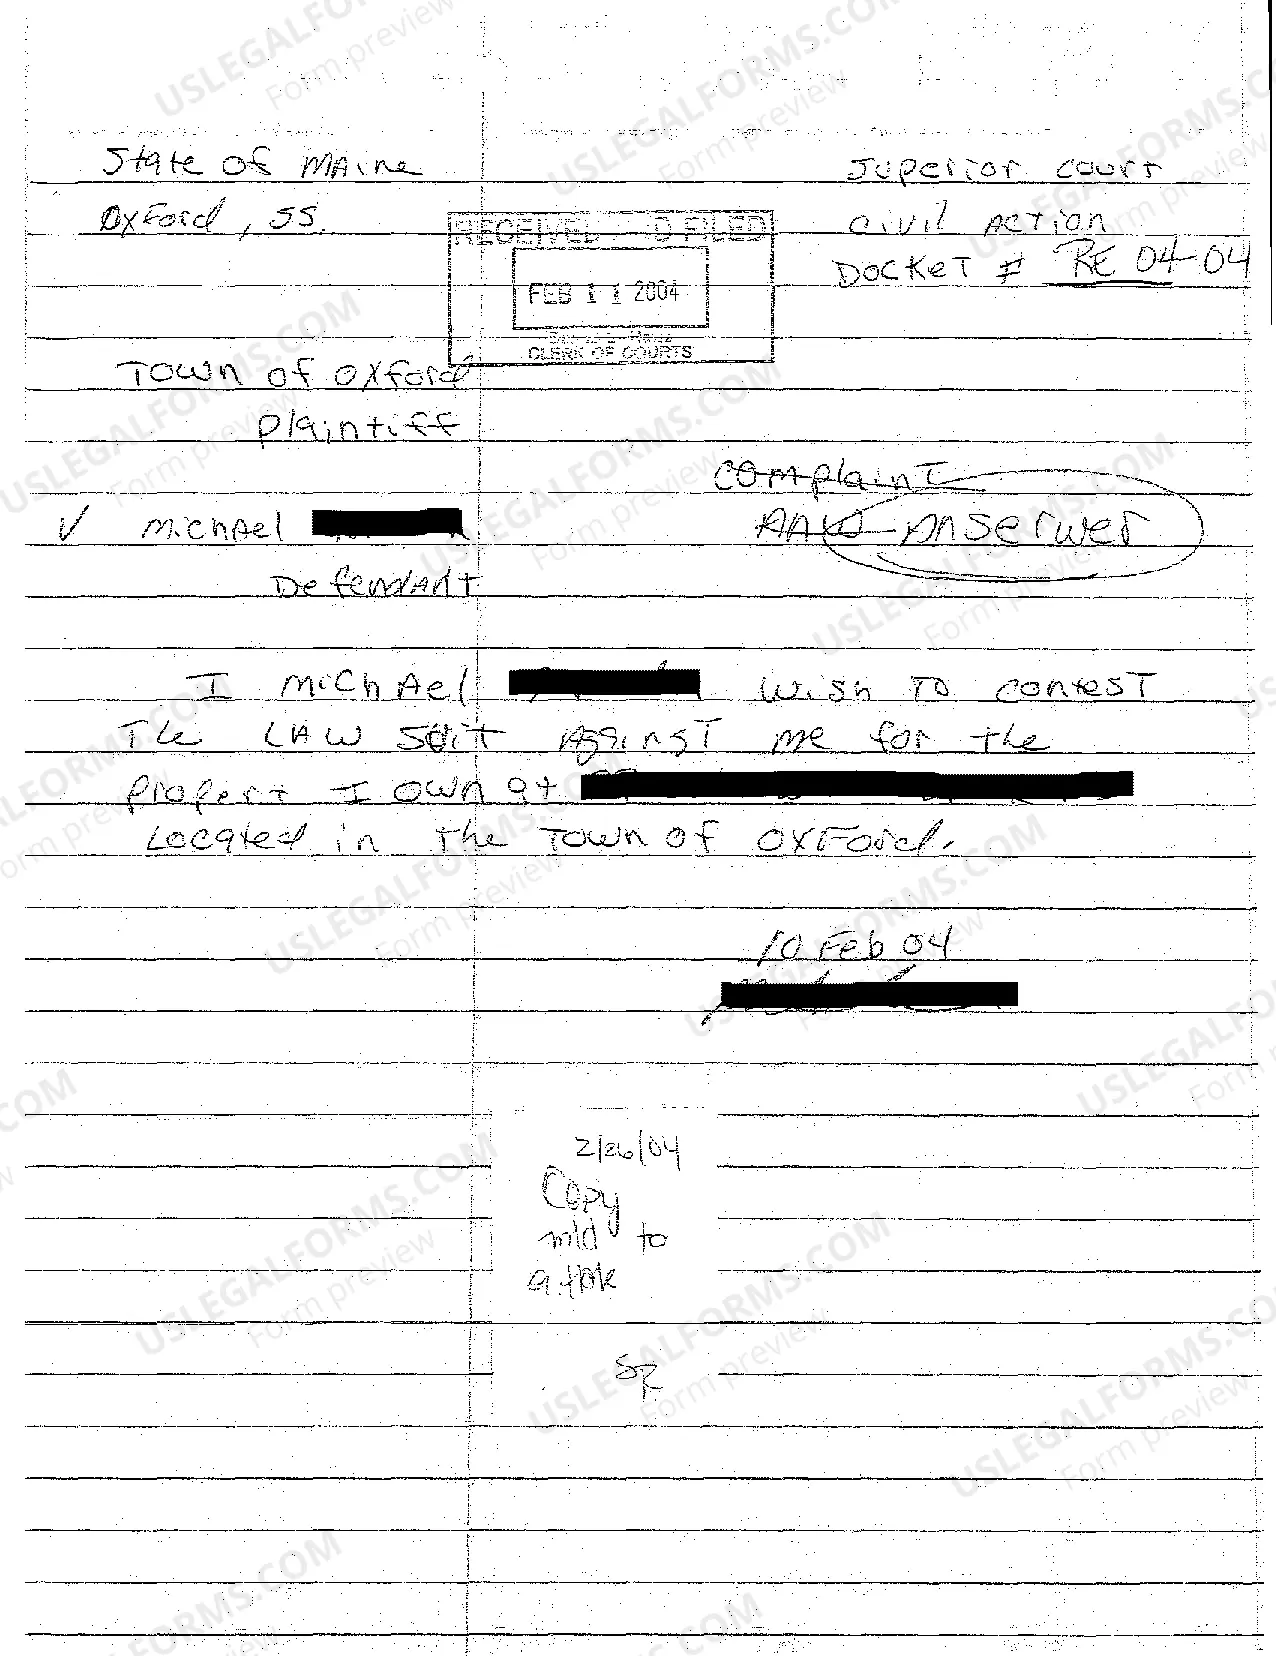 State of MAine
Superior court
OxFord, SS.
RECEIVED FILED
civil Action
DocKet # RE 04-04
FEB 11 2004
CLERK OF COURTS
Town of oxford
plaintiff
complainT
V michAel
Anserwer
DefendAnt
I michAel wish to contesT
The LAW suit AgginsT me for the
propert I own at
Located in the Town of OxFord.
10 Feb 04
2/26/04
Copy
mld to
SR
USLEGALFORMS.COM
Form preview